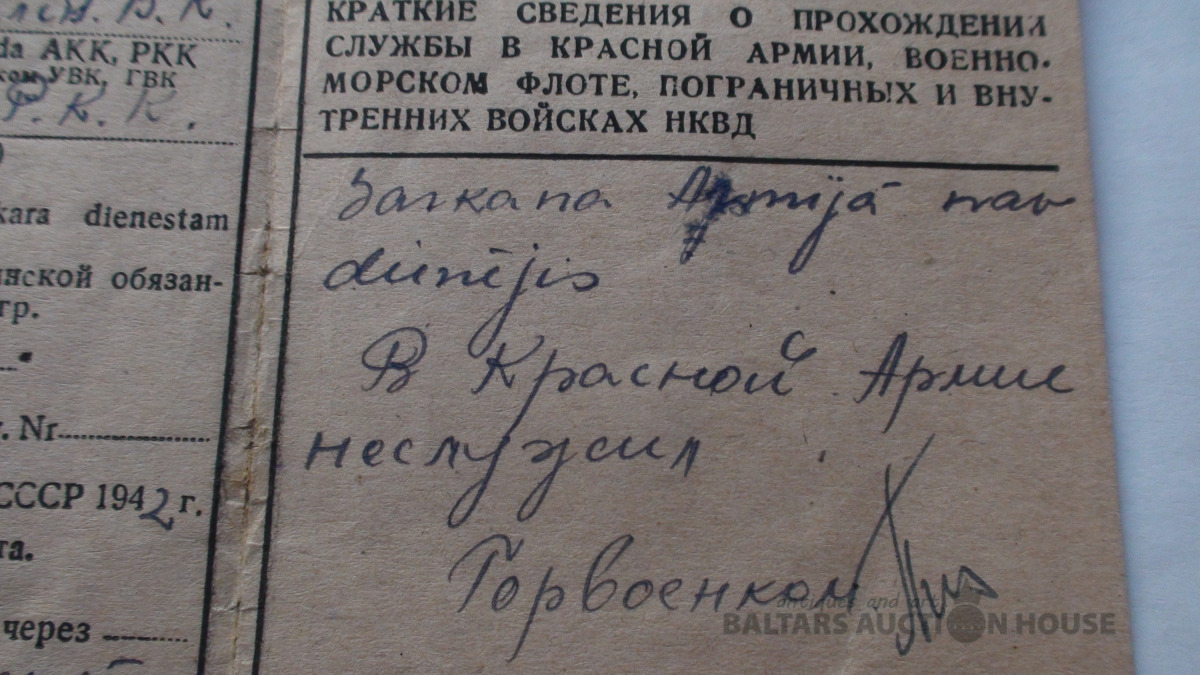 В. К.
da АКК, РКК
ком УВК, ГВК
Р. К. К.
kara dienestam
нской обязан-
гр.
. Nr.
СССР 1942 г.
та.
через
КРАТКИЕ СВЕДЕНИЯ О ПРОХОЖДЕНИИ
СЛУЖБЫ В КРАСНОЙ АРМИИ, ВОЕННО-
МОРСКОМ ФЛОТЕ, ПОГРАНИЧНЫХ И ВНУ-
ТРЕННИХ ВОЙСКАХ НКВД
Sarkana Armijā nav
dienējis
В Красной Армии
неслужил
Горвоенком
antiques and art
BALTARS AUCTION HOUSE